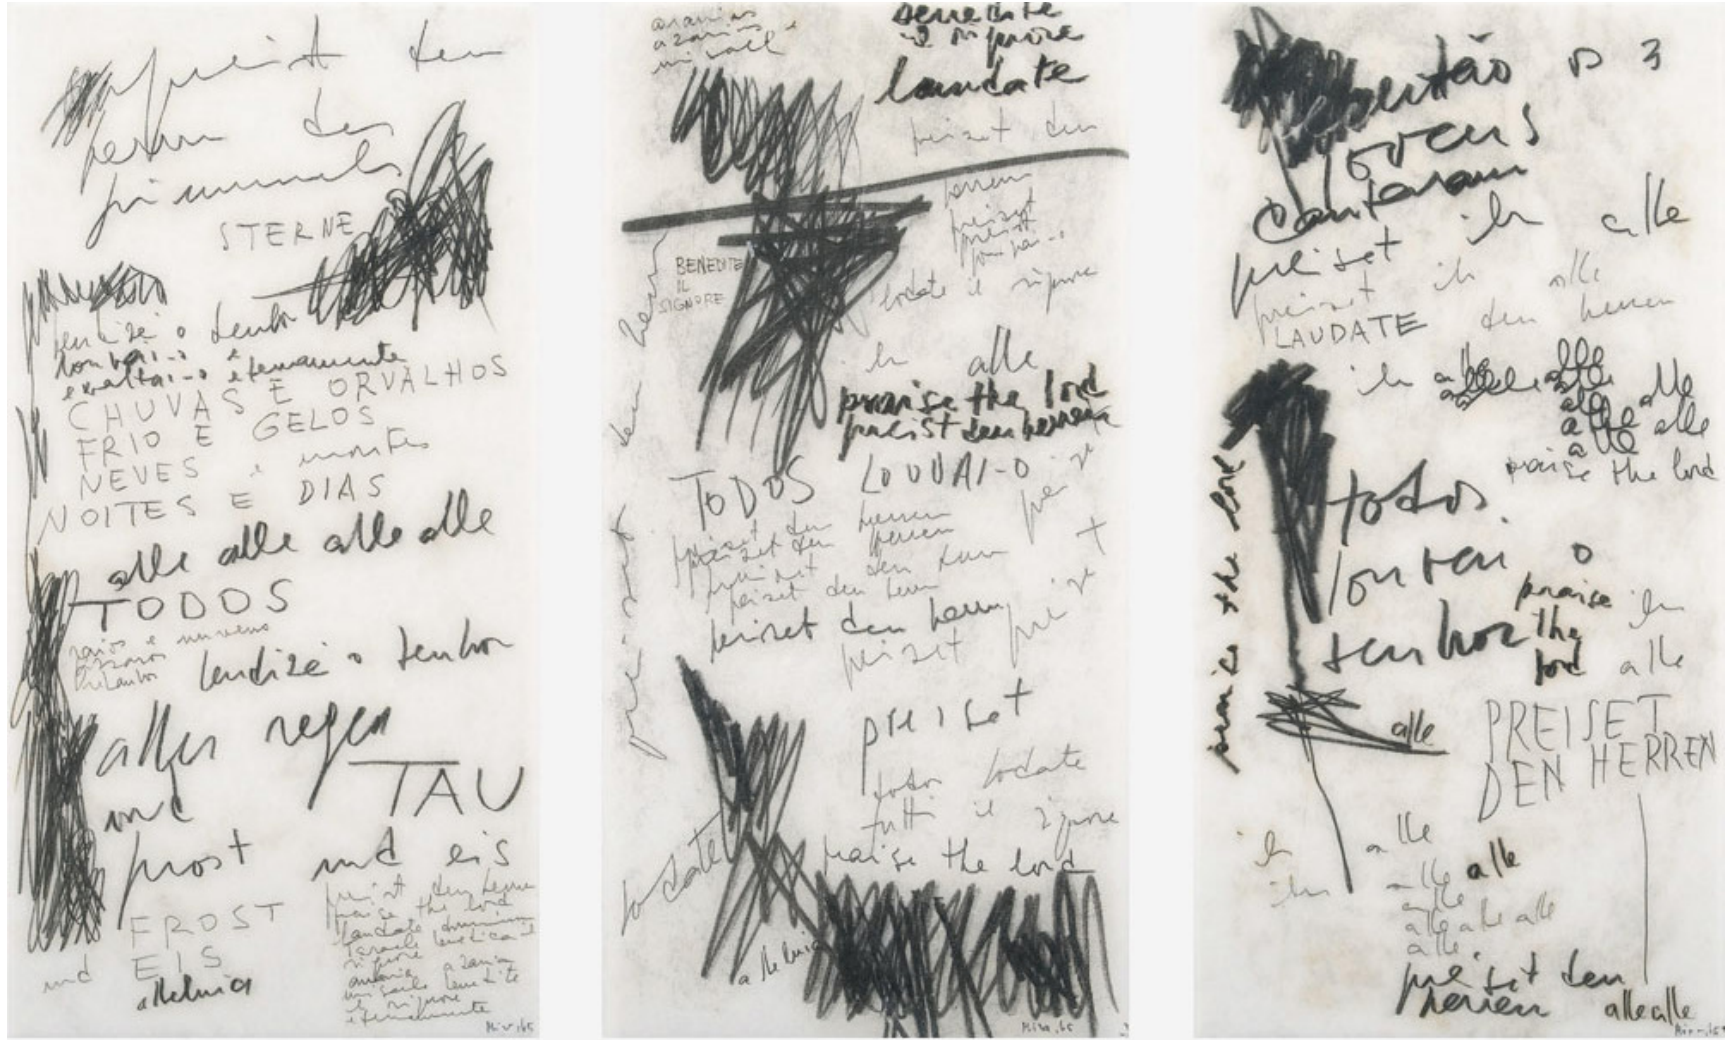 preist den
herrn des
himmels
STERNE
bendizé o senhor
louvai-o e
exaltai-o eternamente
CHUVAS E ORVALHOS
FRIO E GELOS
NEVES e montes
NOITES E DIAS
alle alle alle alle
TODOS
raios e nuvens
bendizé o senhor
alles regen
TAU
und
frost und eis
FROST
und EIS
alleluia
preist den herrn
praise the lord
laudate dominum
israele benedica il
signore
anania azaria
misaele benedite
il signore
eternamente
Mira, 65
ananias
azarias e
misael
benedite
il signore
laudate
preiset den
herren
preiset
preiset
louvai-o
BENEDITE
IL
SIGNORE
lodate il signore
ihr alle
praise the lord
preist den herren
TODOS LOUVAI-O
preiset den herren
preiset den herren
preiset den herrn
preiset den herrn
preiset den herrn
preiset
preiset
preiset den herrn
preiset
todos lodate
tutti il signore
praise the lord
lodate
alleluia
Mira, 65
então os 3
jovens
cantaram
preiset ihr alle
preiset ihr alle
LAUDATE den herren
ihr alle alle alle alle
alle alle
alle alle
alle
praise the lord
praise the lord
todos
louvem o
senhor
praise
the
lord
ihr
alle
alle
PREISET
DEN HERREN
ihr alle
ihr alle alle
alle
alle alle alle
alle
preiset den
herren
alle alle
Mira, 65